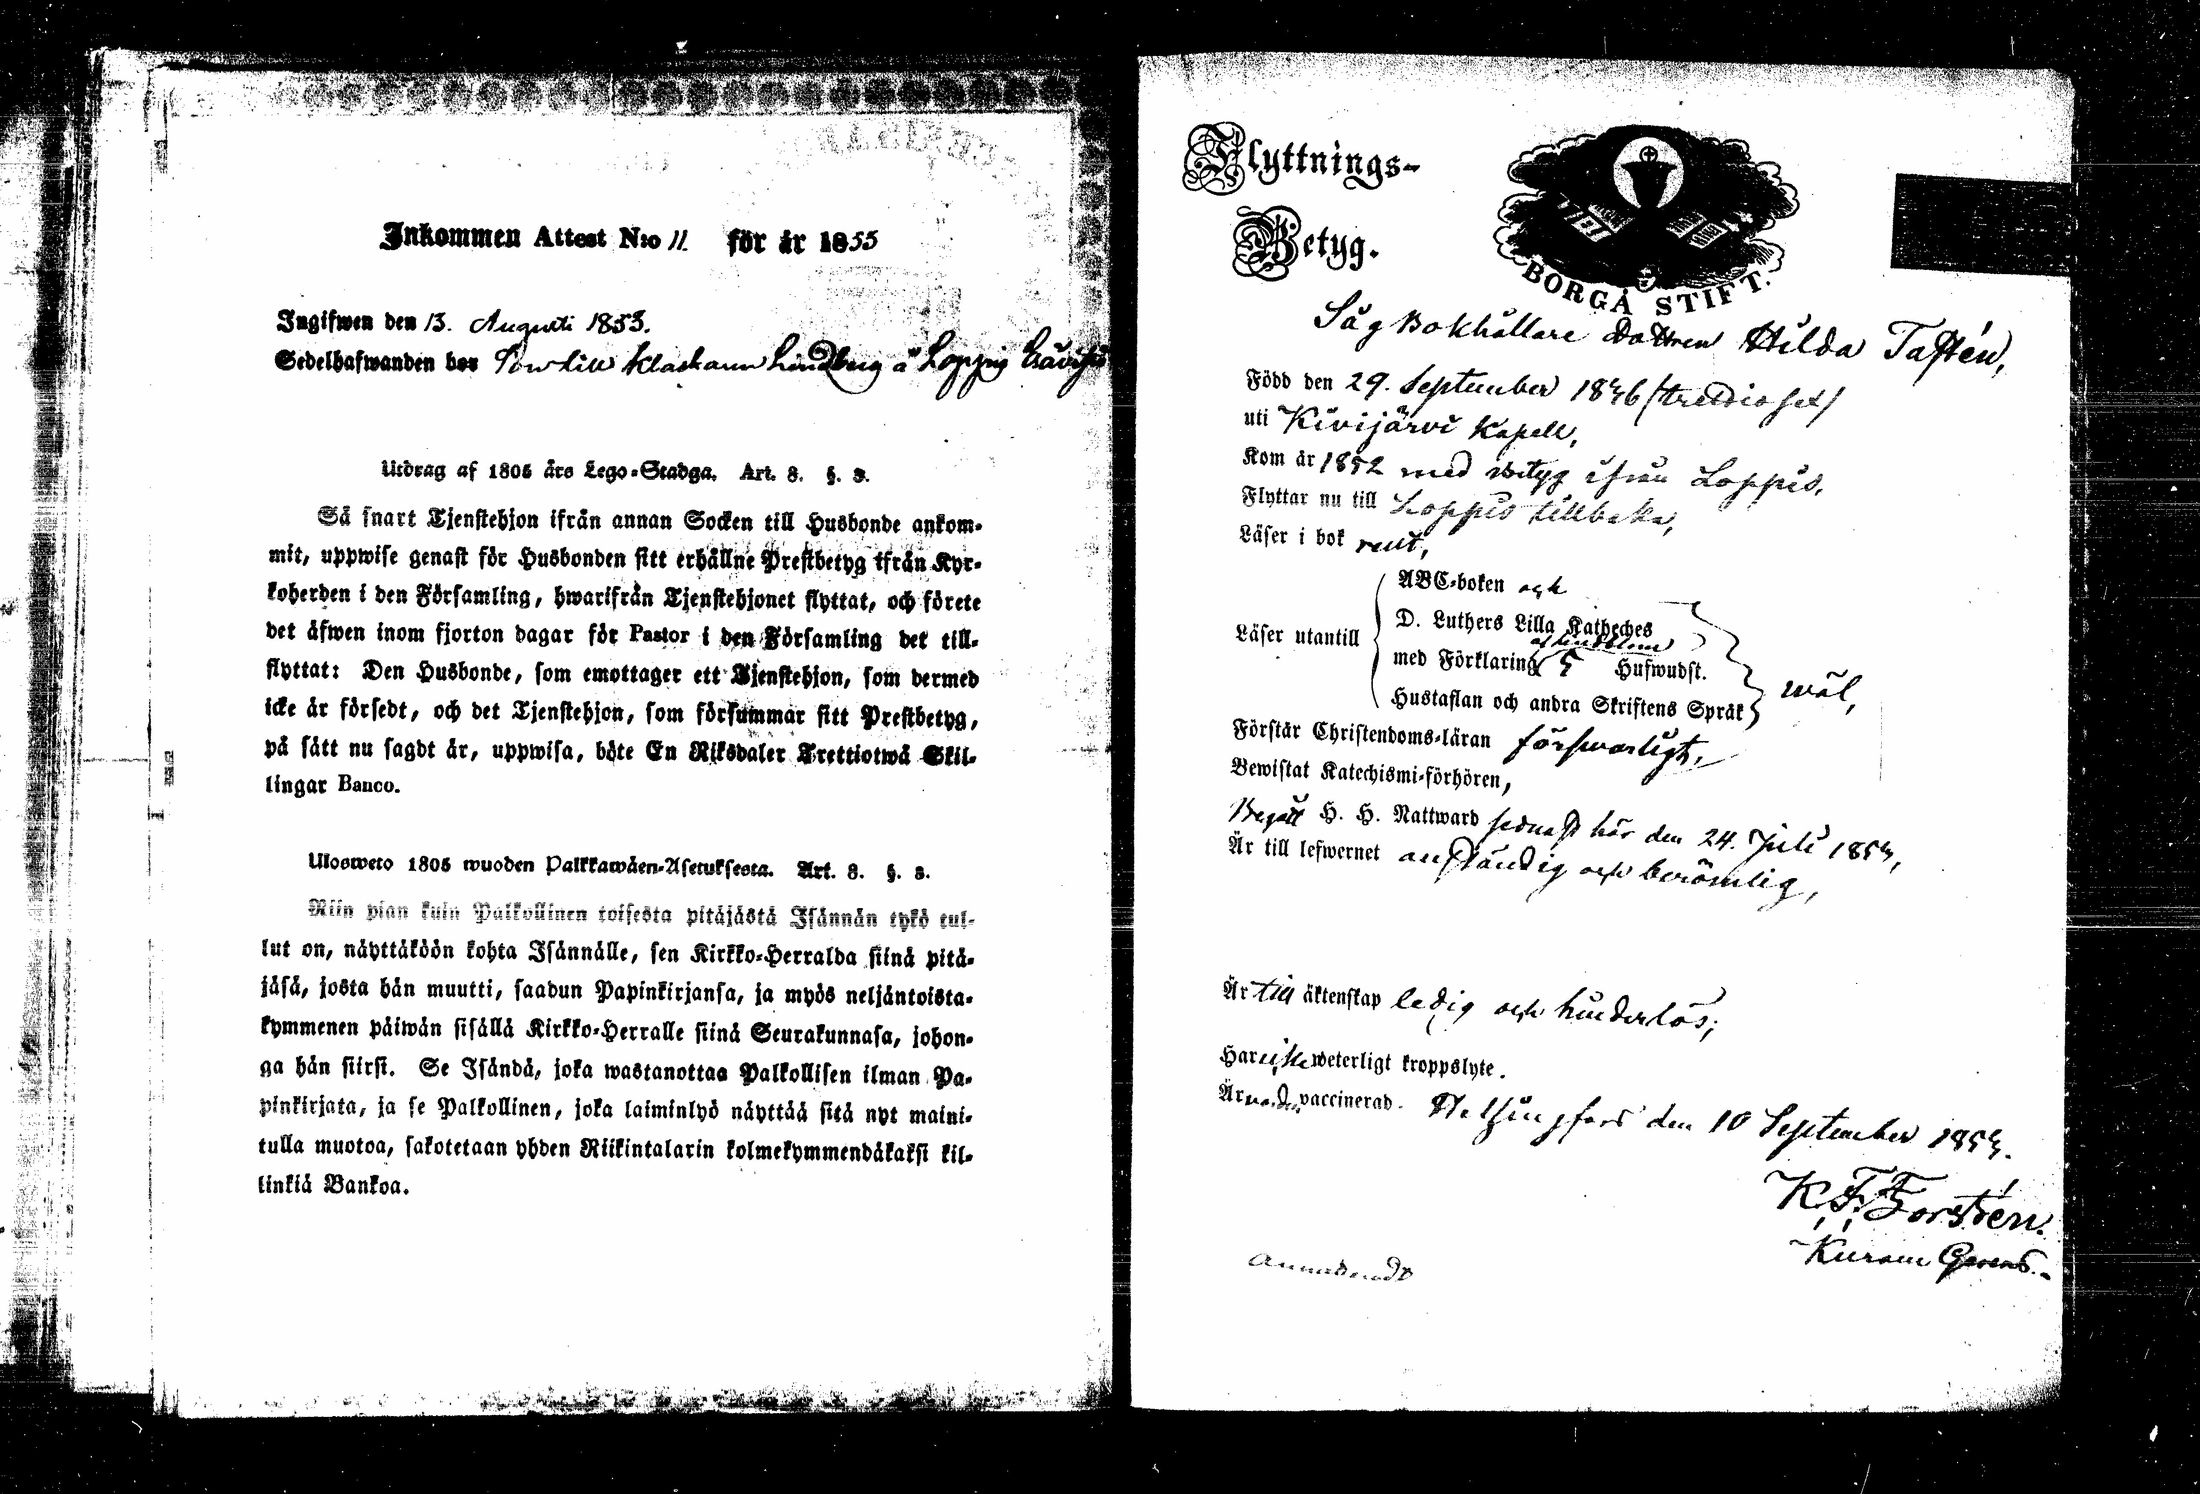 Inkommen Attest N:o 11. för år 1855
Ingifwen den 13. Augusti 1853.
Sedelhafwanden bor Klockaren Lindberg à Loppis
Utdrag af 1805 års Lego-Stadga. Art. 8. §. 3.
Så snart Tjenstehjon ifrån annan Socken till Husbonde ankom-
mit, uppwise genast för Husbonden sitt erhållne Prestbetyg ifrån Kyr-
koherden i den Församling, hwarifrån Tjenstehjonet flyttat, och förete
det äfwen inom fjorton dagar för Pastor i den Församling det till-
flyttat: Den Husbonde, som emottager ett Tjenstehjon, som dermed
icke är försedt, och det Tjenstehjon, som försummar sitt Prestbetyg,
på sätt nu sagdt är, uppwisa, böte En Riksdaler Trettiotwå Skil-
lingar Banco.
Ulosweto 1805 wuoden Palkkawäen-Asetuksesta. Art. 8. §. 3.
Niin pian kuin Palkollinen toisesta pitäjästä Isännän tykö tul-
lut on, näyttäköön kohta Isännälle, sen Kirkko-Herralda siinä pitä-
jäsä, josta hän muutti, saadun Papinkirjansa, ja myös neljäntoista-
kymmenen päiwän sisällä Kirkko-Herralle siinä Seurakunnasa, johon-
ga hän siirsi. Se Isändä, joka wastanottaa Palkollisen ilman Pa-
pinkirjata, ja se Palkollinen, joka laiminlyö näyttää sitä nyt maini-
tulla muotoa, sakotetaan yhden Riikintalarin kolmekymmendäkaksi kil-
linkiä Bankoa.
Flyttnings-
Betyg.
BORGÅ STIFT.
Såg Bokhållare Dottren Hilda Tastén,
Född den 29. September 1836 /trettio sex/
uti Kivijärvi Kapell,
Kom år 1852 med betyg ifrån Loppis.
Flyttar nu till Loppis tillbaka,
Läser i bok rent,
Läser utantill
ABC-boken och
D. Luthers Lilla Katheches
med Förklaring 5 Hufwudst.
Hustaflan och andra Skriftens Språk
wäl,
Förstår Christendoms-läran försvarligt,
Bewistat Katechismi-förhören,
Begått H. H. Nattward sednast här den 24. Juli 1853,
Är till lefwernet anständig och berömlig,
Är till äktenskap ledig och hinderlös;
Har icke weterligt kroppslyte.
Är vaccinerad. Helsingfors den 10 September 1853.
K. F. Forstén.